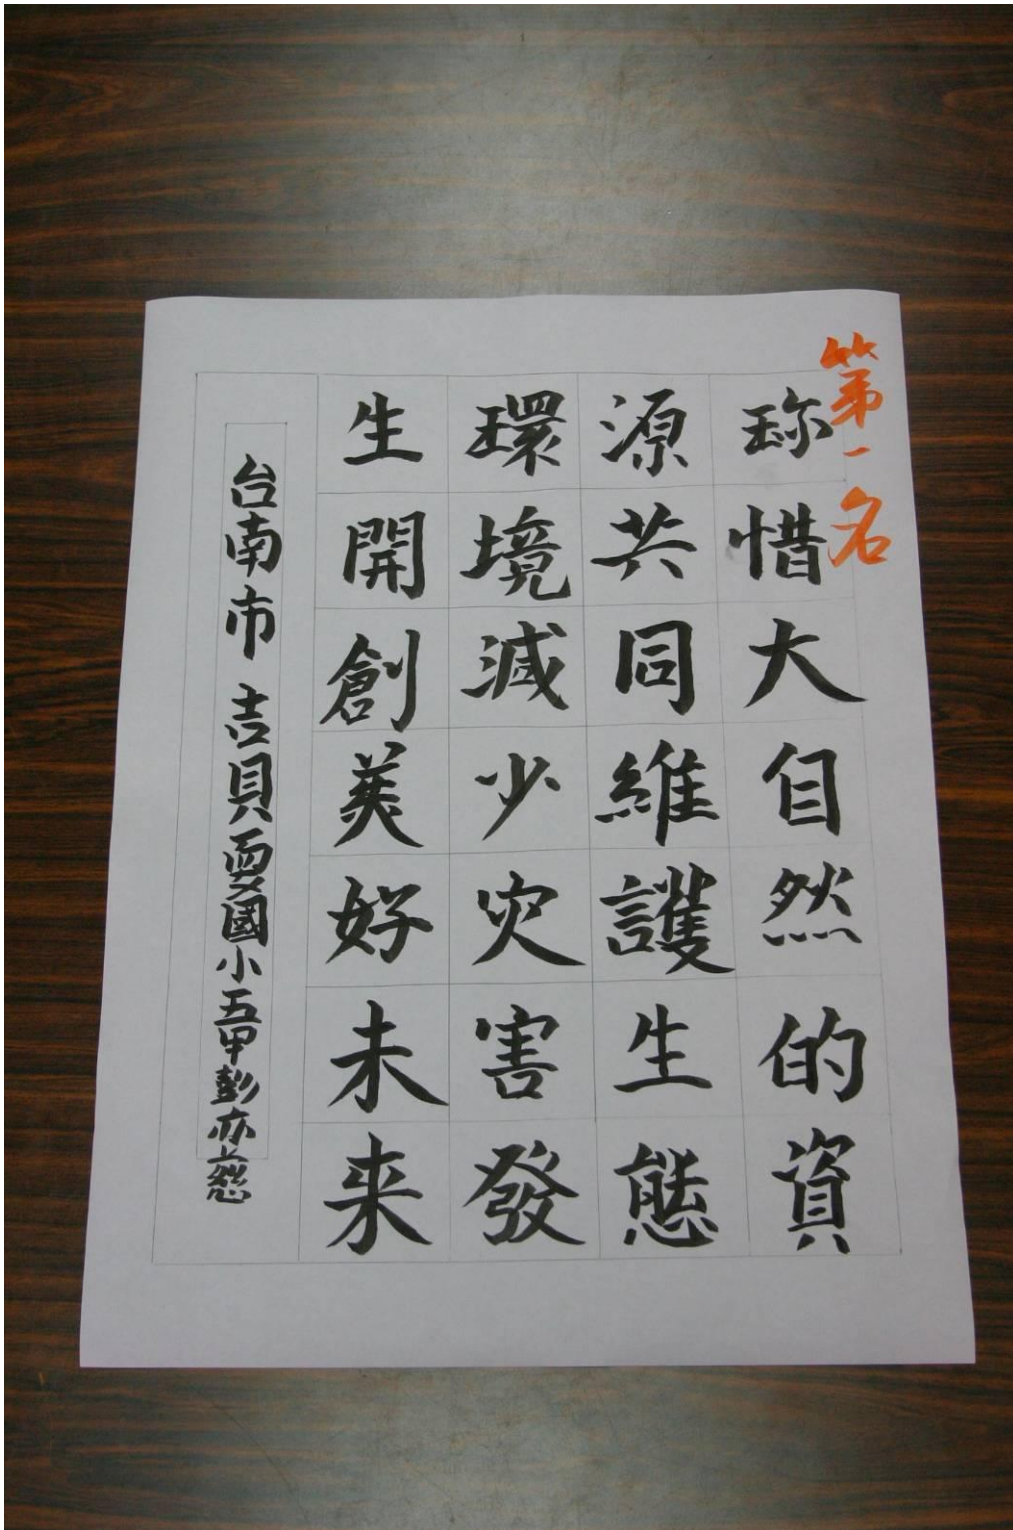 第一名
珎惜大自然的資
源共同維護生態
環境減少灾害發
生開創美好未来
台南市吉貝耍國小五甲彭亦慈